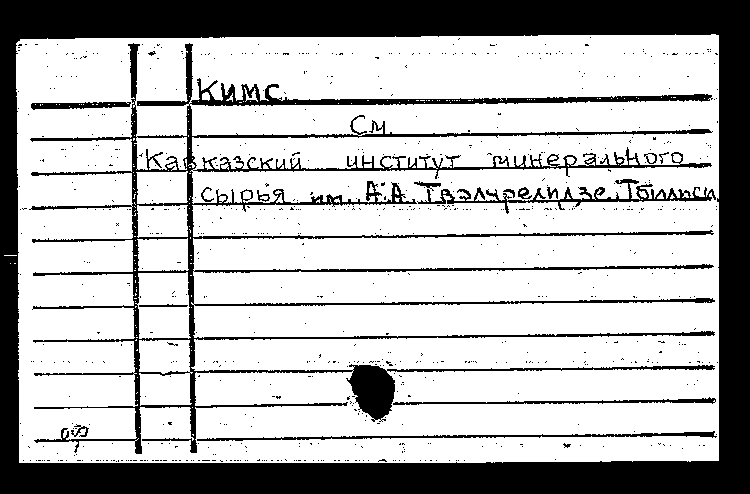 Кимс
См.
Кавказский институт минерального
сырья им. А.А. Твалчрелидзе. Тбилиси